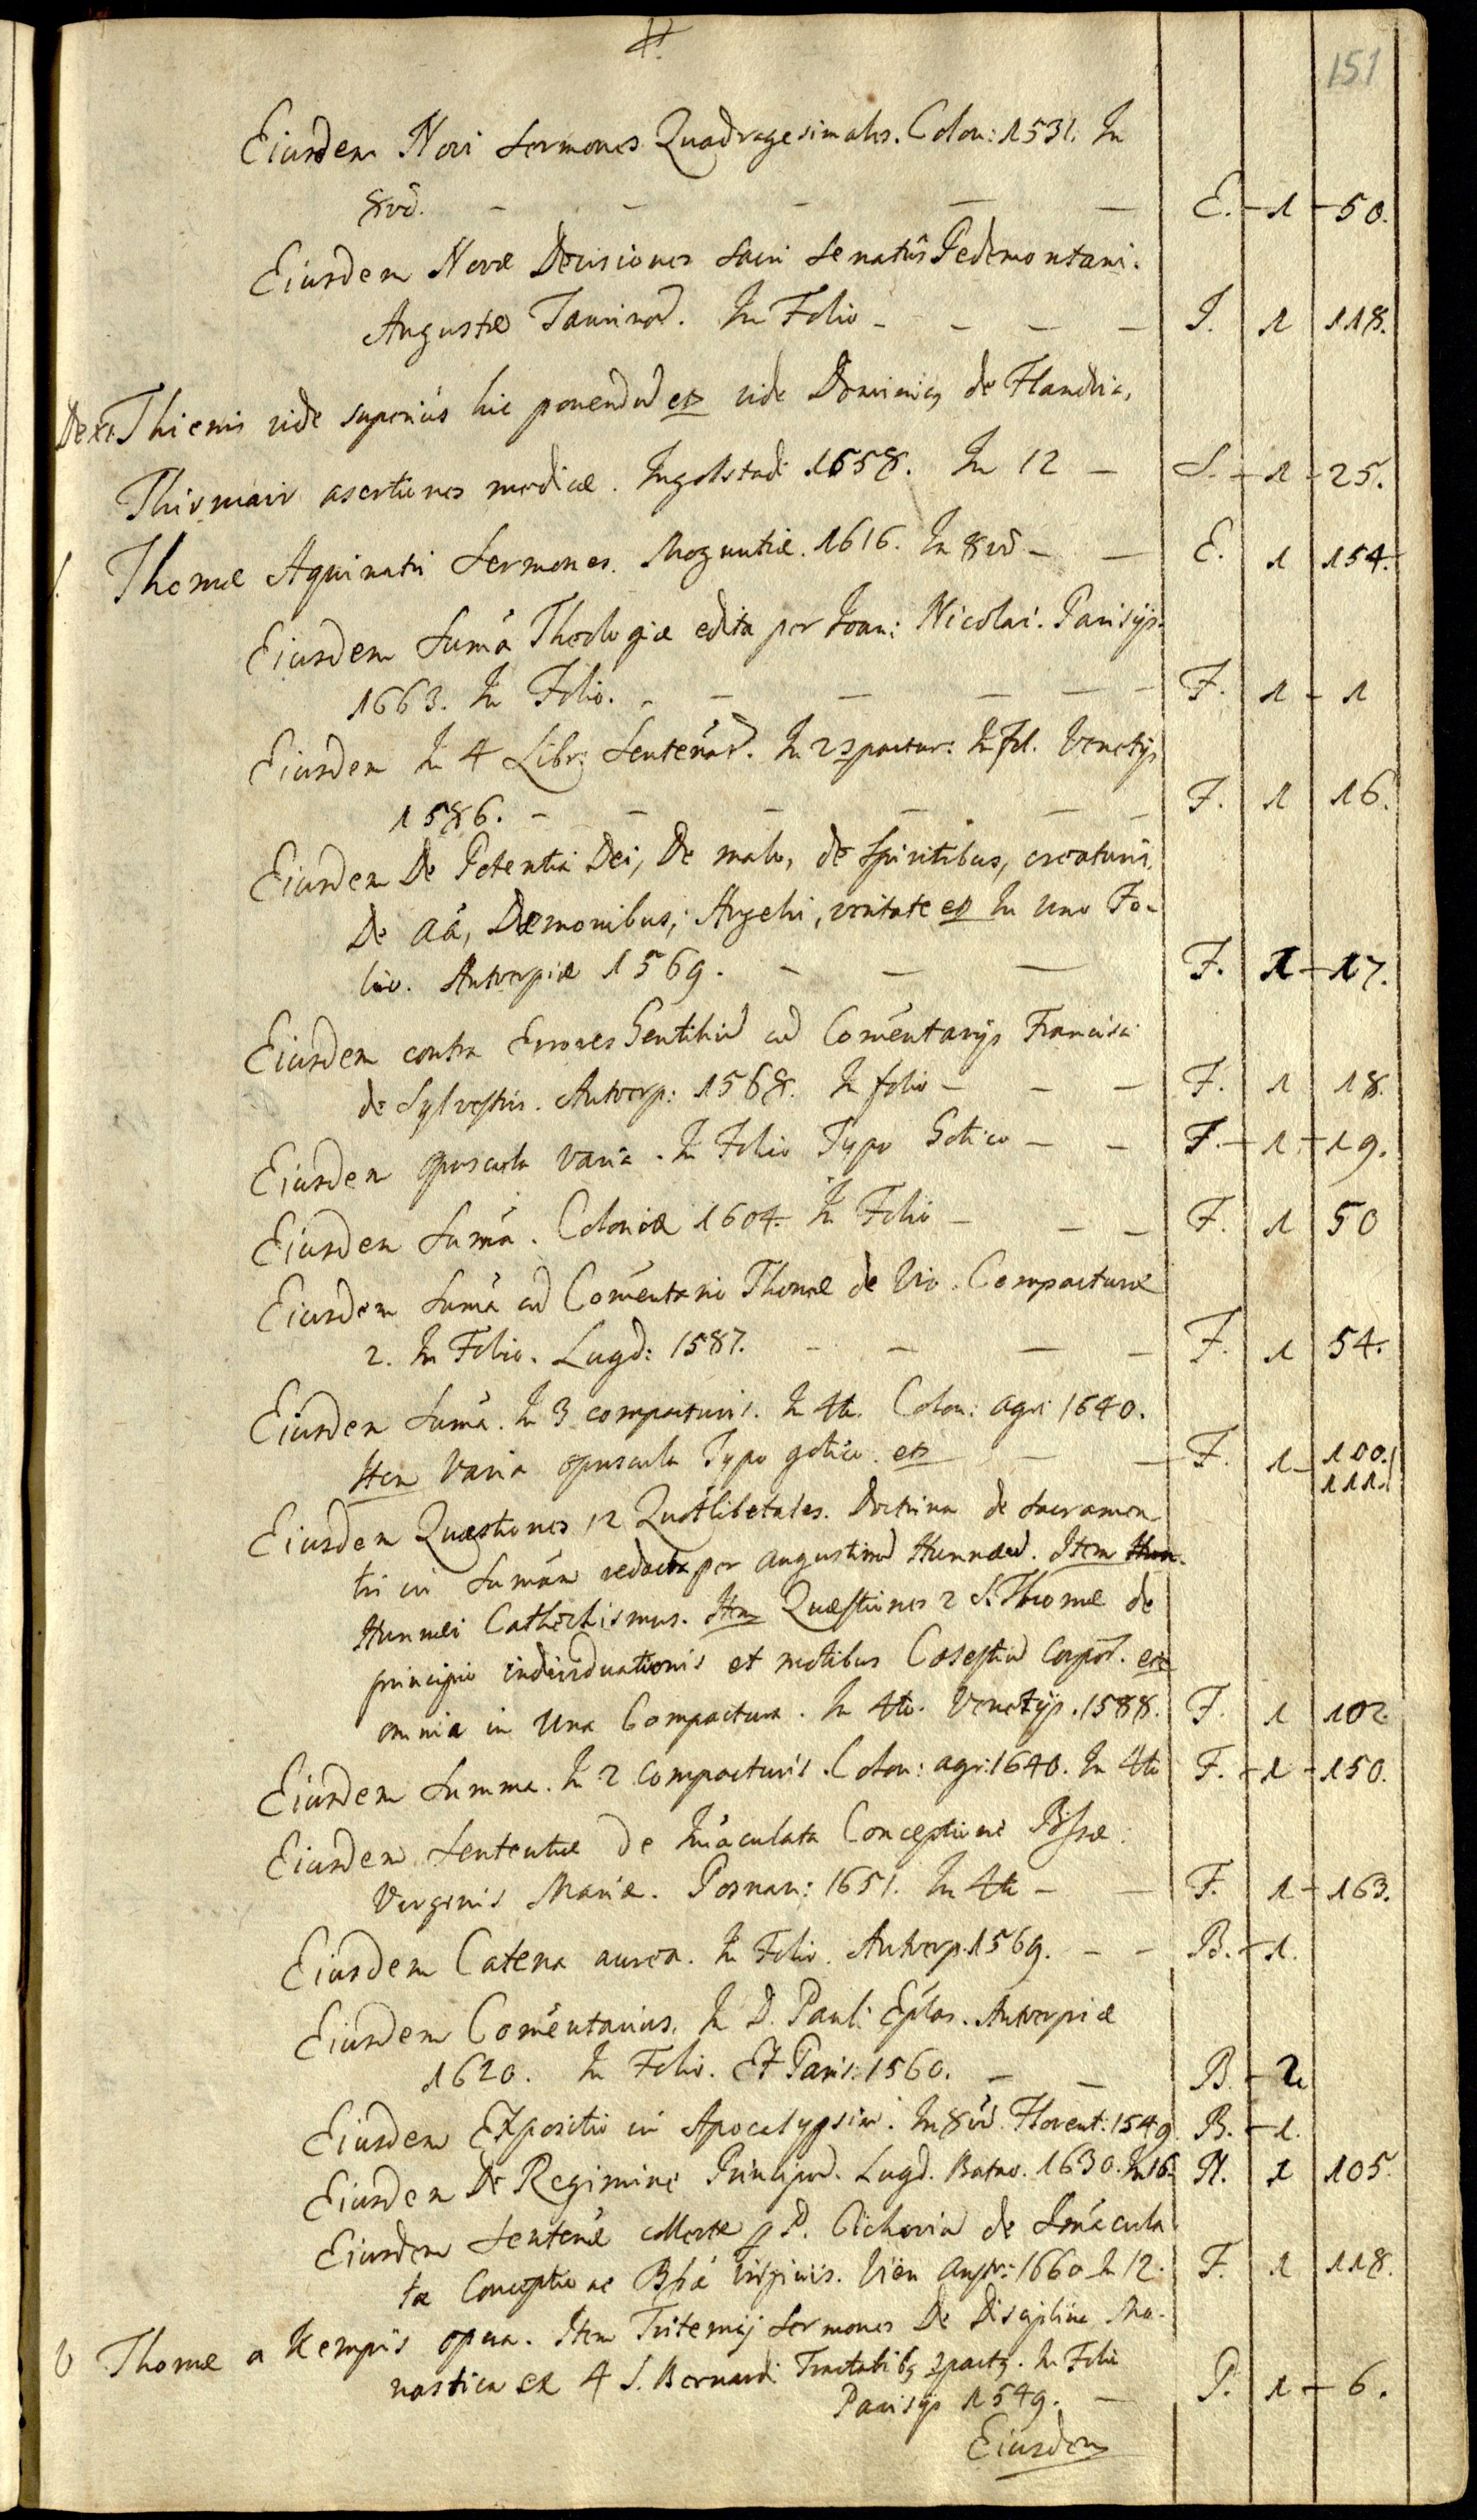 151
Eiusdem Novi Sermones Quadragesimales. Colon: 1531. In
8vô. — — — — — E. — 1 — 50.
Eiusdem Novæ Decisiones Sacri Senatûs Pedemontani.
Augustæ Taurinor. In Folio — — — — J. 1 118.
Thienis vide superiùs hic ponendũ etc vide Dominicq de Flandria,
Thirmair asertiones medicæ. Ingolstadi 1658. In 12 — S. — 1 — 25.
Thomæ Aquinatis Sermones. Moguntiæ. 1616. In 8vô — — E. 1 154.
Eiusdem Suma Theologiæ edita per Joan: Nicolai. Parisijs.
1663. In Folio. — — — — — — F. 1 — 1
Eiusdem In 4 Libr: Sentẽtiar. In 2 compactur: In fol. Venetijs
1586. — — — — — — F. 1 16.
Eiusdem De Potentia Dei, De malo, de Spiritibus, creaturis,
De aĩa, Dæmonibus, Angelis, veritate etc In uno Fo-
lio. Antverpiæ 1569. — — — F. 1 — 17.
Eiusdem contra Errores Gentiliũ cũ Comentarijs Francisci
de Sylvestris. Antverp: 1568. In folio — — — F. 1 18.
Eiusdem opuscula varia. In Folio Typo Gotico — — F. — 1 — 19.
Eiusdem Suma. Coloniæ 1604. In Folio — — — F. 1 50
Eiusdem Suma cũ Comentario Thomæ de Vio. Compacturæ
2. In Folio. Lugd: 1587. — — — — F. 1 54.
Eiusdem Suma. In 3 compacturis. In 4to. Colon: agr: 1640.
Item Varia opuscula Typo gotico. etc — — F. 1 — 100.
111.
Eiusdem Quæstiones 12 Quotlibetales. Doctrina de Sacramen
tis in Suman redacta per Augustinũ Hunnæũ. Item Hun-
Hunnæi Cathechismus. Item Quæstiones 2 S. Thomæ de
principio individuationis et motibus Cœlestiũ corpor. etc
omnia in Una Compactura. In 4to. Venetijs. 1588. F. 1 102.
Eiusdem Summa. In 2 compacturis. Colon: agr: 1640. In 4to F. — 1 — 150.
Eiusdem Sententiæ de Imaculata Conceptione Bissæ:
Virginis Mariæ. Posnan: 1651. In 4to — — F. 1 — 163.
Eiusdem Catena aurea. In Folio. Antverp. 1569. — — B. — 1.
Eiusdem Comentarius. In D. Pauli Eplas. Antverpiæ
1620. In Folio. Et Paris: 1560. — — B. — 2.
Eiusdem Expositio in Apocalypsim. In 8vô. Florent: 1549. B. — 1.
Eiusdem De Regimine Principũ. Lugd. Batav. 1630. In 16. N. 1 105.
Eiusdem Sentenæ collectæ p P. Cichoviũ de Imacula
ta Conceptione Bssæ Virginis. Vien Austr: 1660 In 12. F. 1 118.
Thomæ a Kempis opera. Item Tritemij Sermones De Disciplina Mo-
nastica et 4 S. Bernardi Tractatibq compactq. In Folio
Parisijs 1549. — P. 1 — 6.
Eiusdem